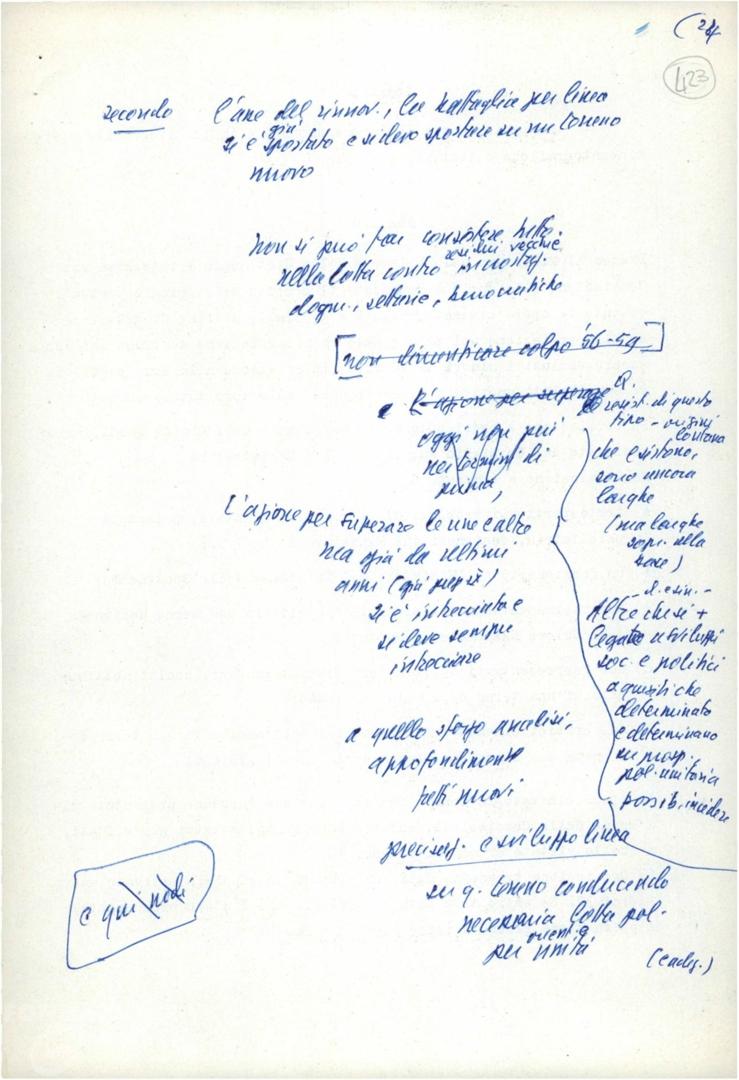 24
423
secondo l'ane del rinnov., la battaglia per linea
già
si è spostato e si deve spostare su un terreno
nuovo
non si può far consistere tutto
nella lotta contro residui vecchie incrostaz.
dogm., settarie, burocratiche
[non dimenticare colpo '56-59]
e L'azione per superare
oggi non più
nei termini di
prima,
L'azione per superare le une e altre
ma già da ultimi
anni (già
si è intrecciata e
si deve sempre
intrecciare
a quello sforzo analisi,
approfondimento
fatti nuovi
precisaz. e sviluppo linea
su q. terreno conducendo
necessaria lotta pol.
orient. e
per unità
(cadez.)
Q.
resist. di questo
tipo - origini
lontana
che esistono,
sono ancora
larghe
(ma larghe
sopr. alla
base)
Altre che si +
legate a sviluppi
soc. e politici
a quesiti che
determinato
e determinano
su prosp.
pol. unitaria
possib. incidere
e qui nodi